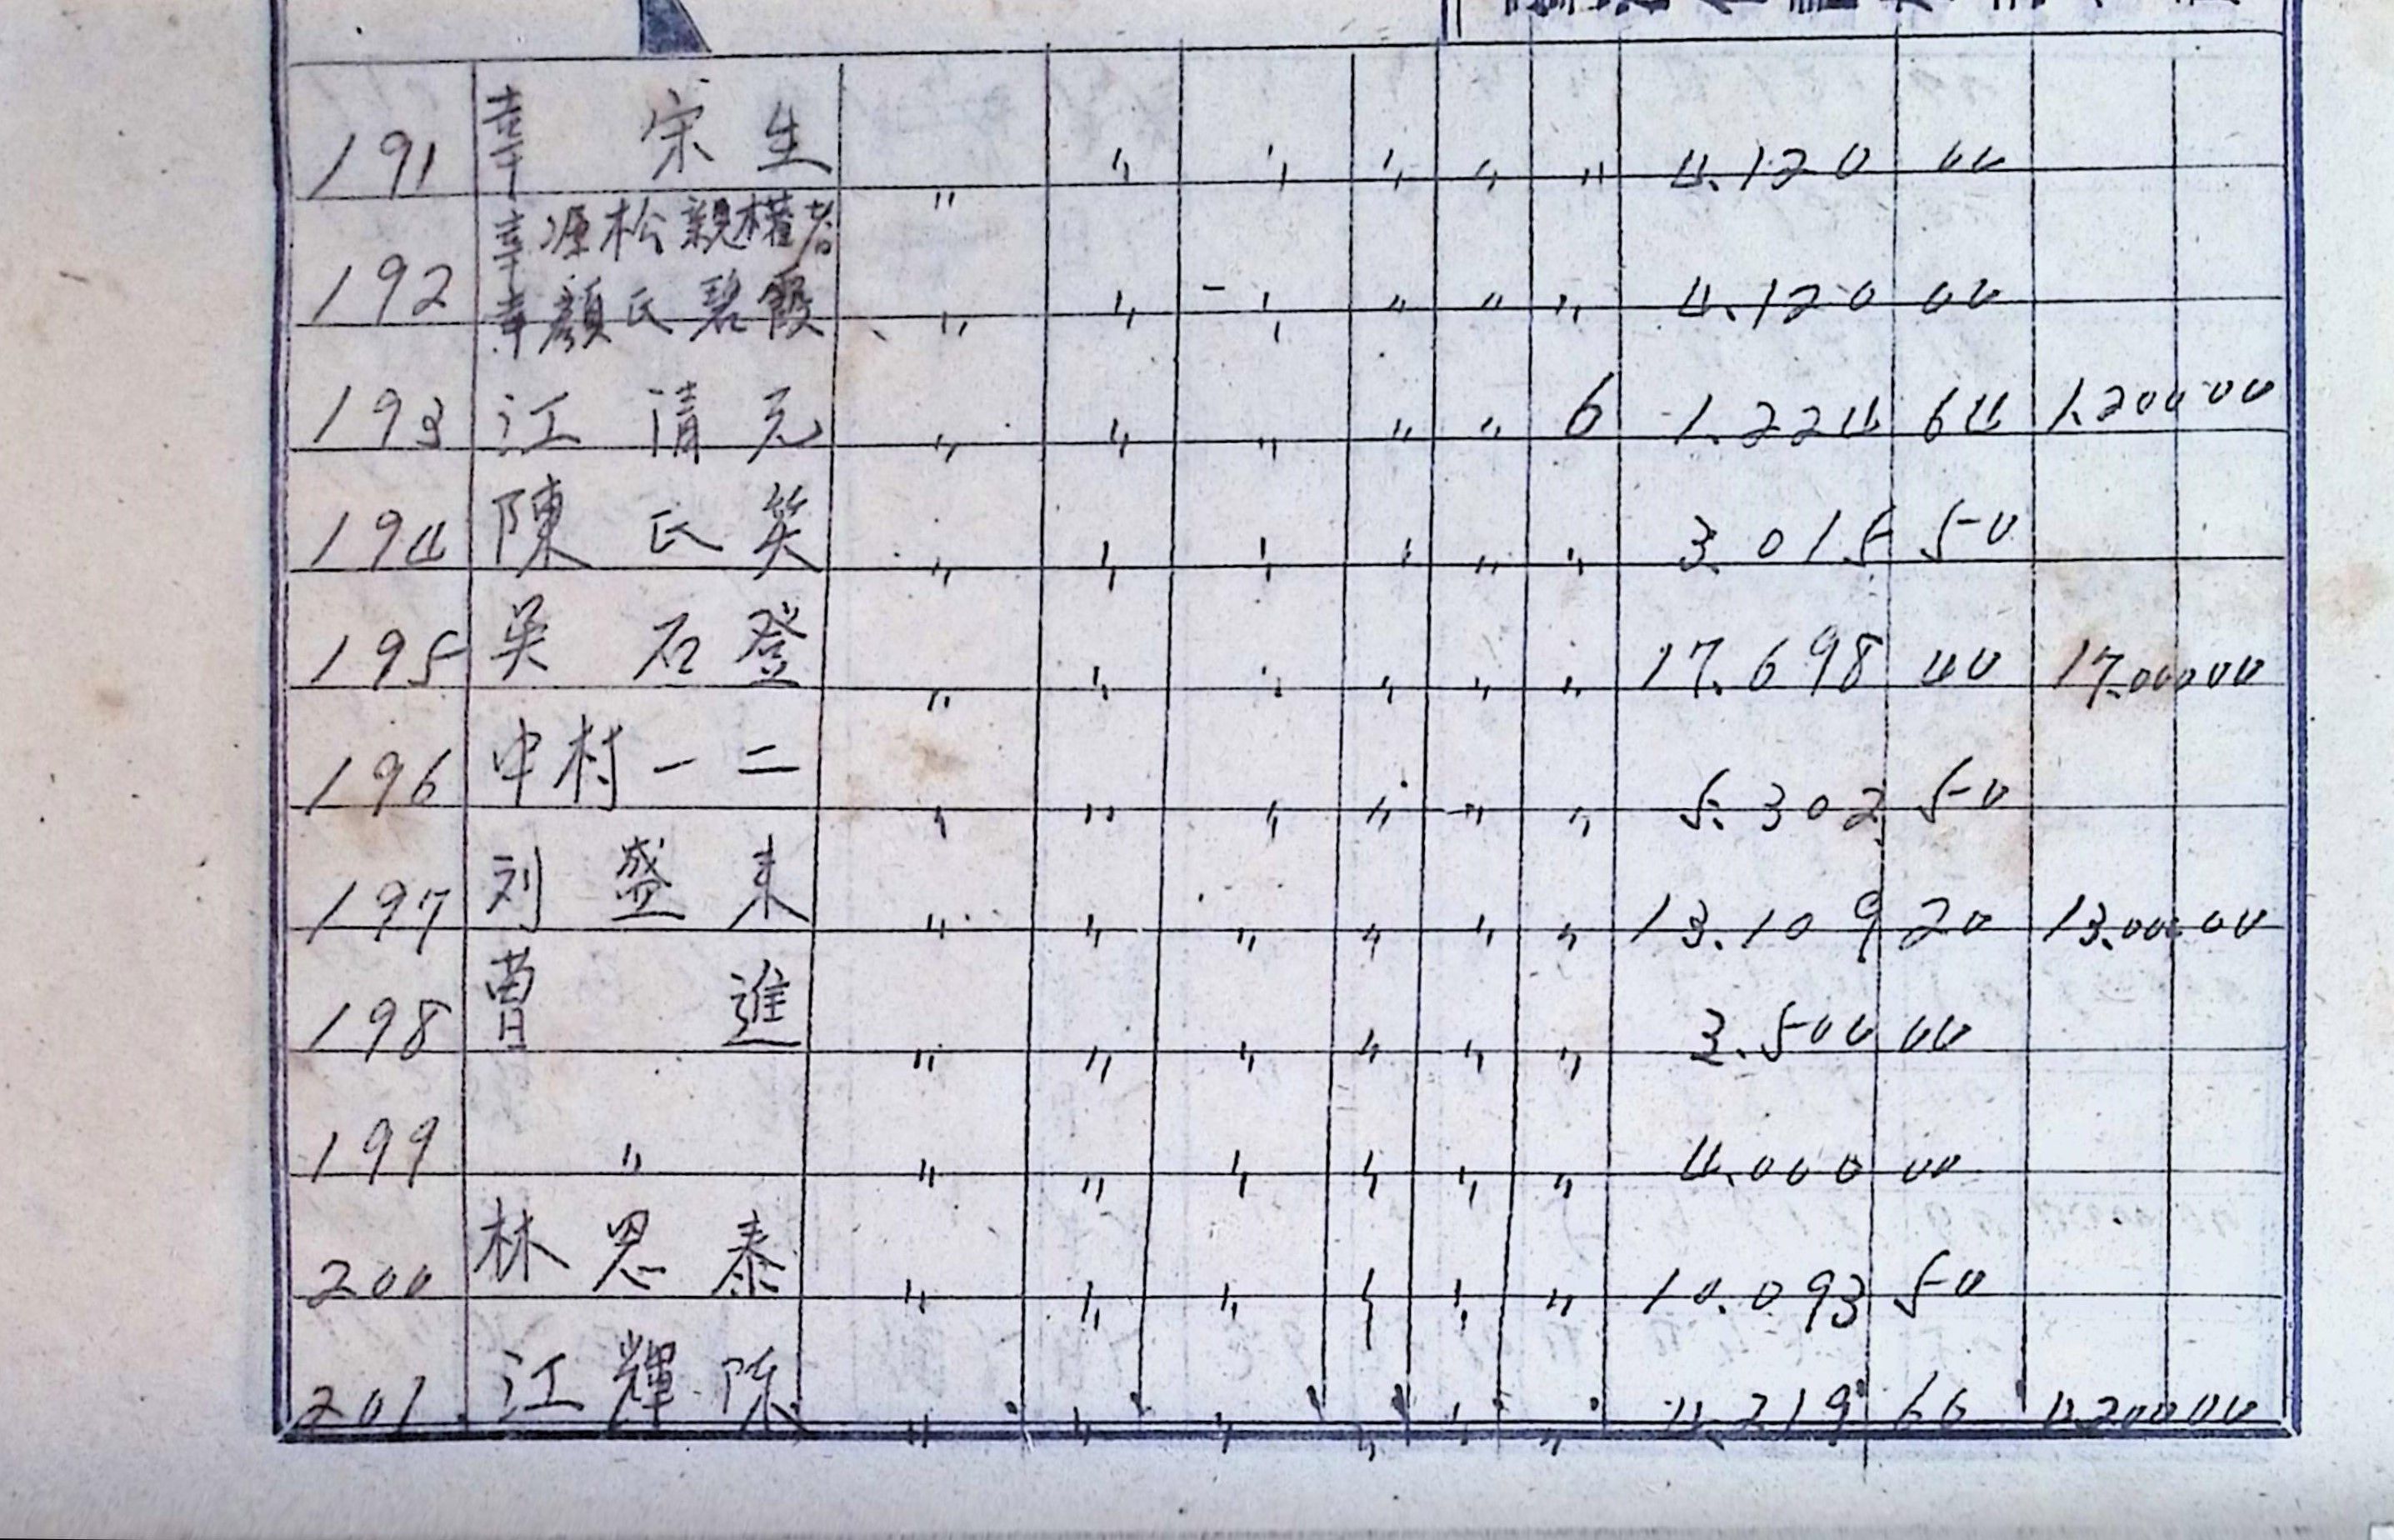 191 辜 宗 生 〃 〃 〃 〃 〃 〃 4.120 00
192 辜源松親権者
辜顏氏碧霞 〃 〃 〃 〃 〃 〃 4.120 00
193 江 清 元 〃 〃 〃 〃 〃 6 1.224 64 1.200 00
194 陳 氏 笑 〃 〃 〃 〃 〃 〃 3.015 50
195 吳 石 登 〃 〃 〃 〃 〃 〃 17.698 40 17.000 00
196 中村一二 〃 〃 〃 〃 〃 〃 5.302 50
197 刘 盛 来 〃 〃 〃 〃 〃 〃 13.109 20 13.000 00
198 曹 進 〃 〃 〃 〃 〃 〃 3.500 00
199 〃 〃 〃 〃 〃 〃 〃 4.000 00
200 林 恩 泰 〃 〃 〃 〃 〃 〃 10.093 50
201 江 輝 〃 〃 〃 〃 〃 〃 4.219 66 4.200 00